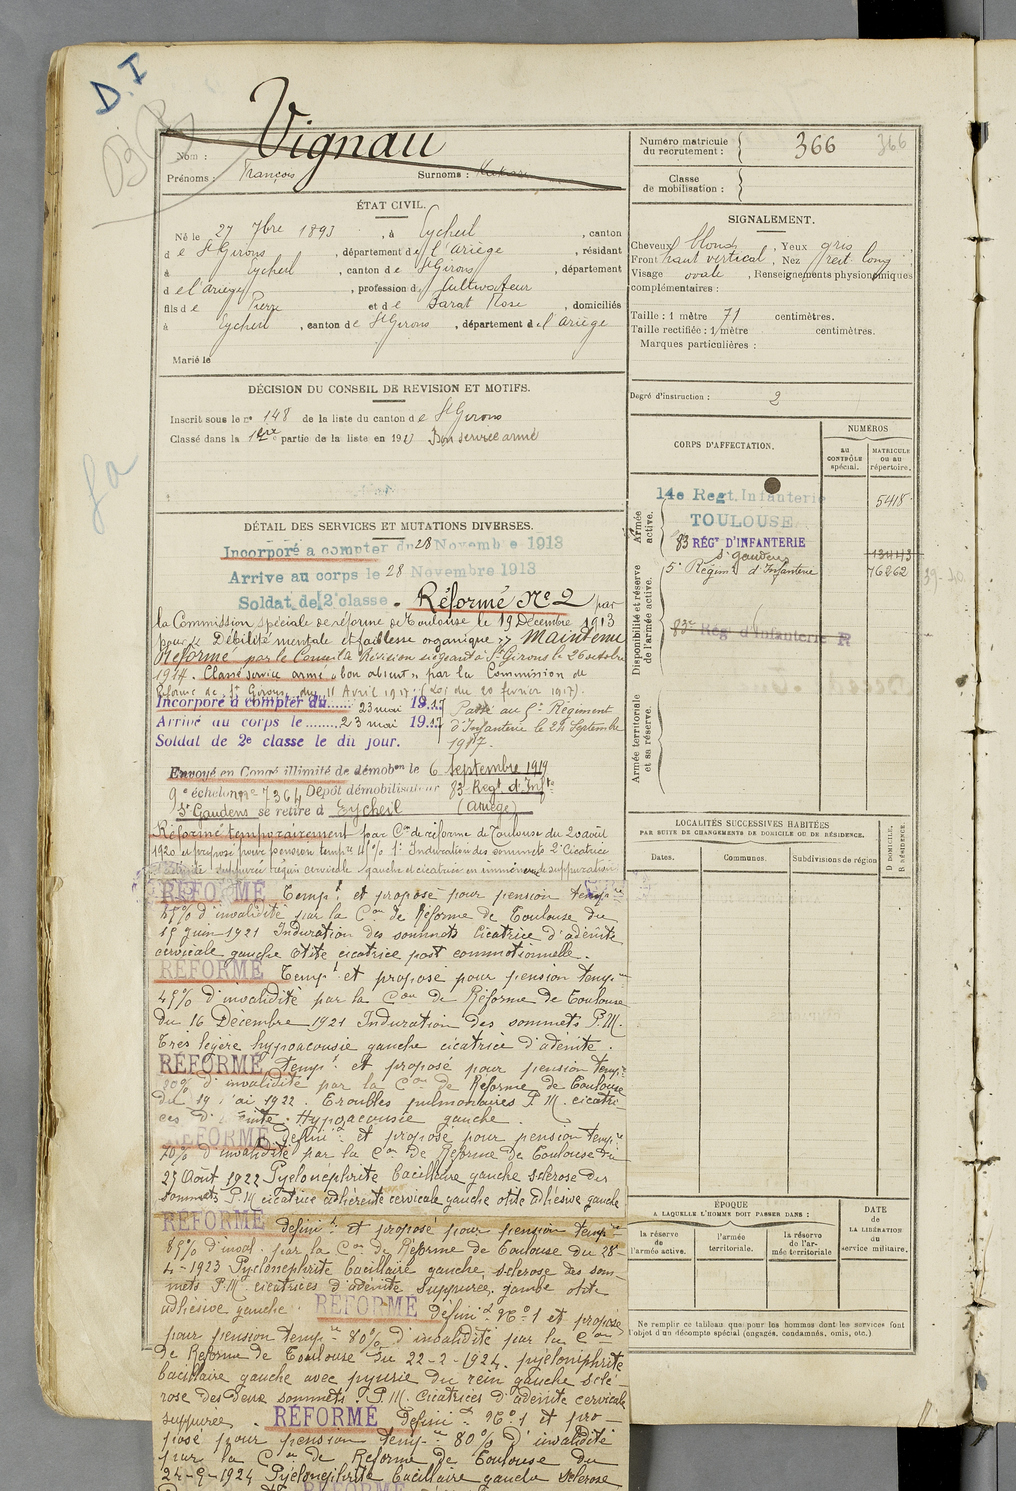 D.I
Vignau
Nom :
Prénoms : François Surnoms :
Numéro matricule du recrutement : 366 366
Classe de mobilisation :
ÉTAT CIVIL.
Né le 27 7bre 1893, à Eycheil, canton
de St Girons, département de l'Ariège, résidant
à Eycheil, canton de St Girons, département
de l'Ariège, profession de Cultivateur
fils de Pierre et de Barat Rose, domiciliés
à Eycheil, canton de St Girons, département de l'Ariège
Marié le
SIGNALEMENT.
Cheveux blonds, Yeux gris
Front haut vertical, Nez rect long,
Visage ovale, Renseignements physionomiques
complémentaires :
Taille : 1 mètre 71 centimètres.
Taille rectifiée : 1 mètre centimètres.
Marques particulières :
Degré d'instruction : 2
DÉCISION DU CONSEIL DE REVISION ET MOTIFS.
Inscrit sous le no 148 de la liste du canton de St Girons
Classé dans la 1ère partie de la liste en 1913 Bon service armé
CORPS D'AFFECTATION.
NUMÉROS
au CONTRÔLE spécial.
MATRICULE ou au répertoire.
Armée active.
14e Regt. Infanterie 5418
TOULOUSE
83 RÉGt D'INFANTERIE
St gaudens
5e Régimt d'Infanterie 76262 39-40
Disponibilité et réserve de l'armée active.
83e Rég d'Infanterie R
Armée territoriale et sa réserve.
DÉTAIL DES SERVICES ET MUTATIONS DIVERSES.
Incorporé à compter du 28 Novembre 1913
Arrive au corps le 28 Novembre 1913
Soldat de 2e classe. Réformé No 2 par
la Commission spéciale de réforme de Toulouse le 19 Décembre 1913
pour « Débilité mentale et faiblesse organique » Maintenu
Réformé par le Conseil de Révision siégeant à St Girons le 26 octobre
1914. Classé service armé « bon absent » par la Commission de
Réforme de St Girons du 11 Avril 1917 (Loi du 20 février 1917).
Incorporé à compter du...... 23 mai 1917
Arrivé au corps le ........ 23 mai 1917
Soldat de 2e classe le dit jour.
Passé au 5e Régiment
d'Infanterie le 24 Septembre
1917.
Envoyé en Congé illimité de démobon le 6 septembre 1919
9e échelon no 7364 Dépôt démobilisateur 83 Regt d'Infie
St Gaudens se retire à Eycheil (Ariège)
Réformé temporairement par Con de réforme de Toulouse du 20 août
1920 et proposé pour pension tempre 45% 1° Induration des sommets 2° Cicatrice
d'adénite suppurée région cervicale gauche et cicatrice en imminence de suppuration
RÉFORMÉ Tempt et proposé pour pension tempre
45% d'invalidité par la Con de Réforme de Toulouse du
15 Juin 1921 Induration des sommets Cicatrice d'adénite
cervicale gauche otite cicatrice post commotionnelle.
RÉFORMÉ Tempt et proposé pour pension tempre
45% d'invalidité par la Con de Réforme de Toulouse
du 16 Décembre 1921 Induration des sommets P.M.
Très légère hypoacousie gauche cicatrice d'adénite.
RÉFORMÉ tempt et proposé pour pension tempre
d'invalidité par la Con de Réforme de Toulouse
du 19 Mai 1922. Troubles pulmonaires P.M. cicatri
ces d'adénite. Hypoacousie gauche.
RÉFORMÉ définit et proposé pour pension tempre
70% d'invalidité par la Con de Réforme de Toulouse du
25 Août 1922 Pyélonéphrite bacillaire gauche sclérose des
sommets P.M cicatrice adhérente cervicale gauche otite adhésive gauche
RÉFORMÉ définit et proposé pour pension tempre
85% d'inval. par la Con de Réforme de Toulouse du 28-
4-1923 Pyelonephrite bacillaire gauche, sclerose des som-
mets P.M. cicatrices d'adénite suppurée, otite
adhésive gauche. RÉFORMÉ définit No 1 et proposé
pour pension tempre 80% d'invalidité par la Con
de Réforme de Toulouse du 22-2-1924. pyéloniphrite
bacillaire gauche avec pyurie du rein gauche sclé-
rose des deux sommets. P.M. Cicatrices d'adénite cervicale
suppurée. RÉFORMÉ définit No 1 et pro-
posé pour pension tempre 80% d'invalidité
par la Con de Réforme de Toulouse du
24-9-1924 Pyélonéphrite bacillaire gauche sclérose
RÉFORMÉ
LOCALITÉS SUCCESSIVES HABITÉES
PAR SUITE DE CHANGEMENTS DE DOMICILE OU DE RÉSIDENCE.
Dates. Communes. Subdivisions de région
D DOMICILE.
R RÉSIDENCE.
ÉPOQUE
A LAQUELLE L'HOMME DOIT PASSER DANS :
la réserve de l'armée active.
l'armée territoriale.
la réserve de l'armée territoriale
DATE de LA LIBÉRATION du service militaire.
Ne remplir ce tableau que pour les hommes dont les services font
l'objet d'un décompte spécial (engagés, condamnés, omis, etc.)